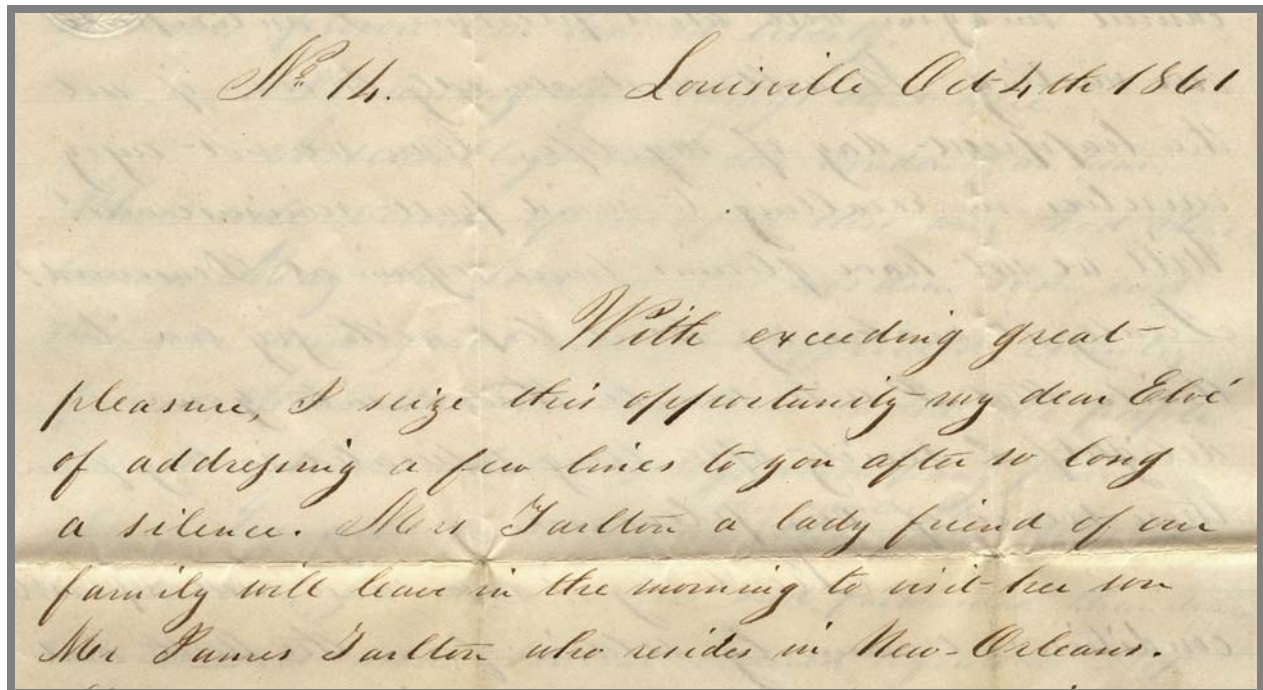 No. 14. Louisville Oct 4th 1861
With exceeding great
pleasure, I seize this opportunity my dear Elvé
of addressing a few lines to you after so long
a silence. Mrs Tarlton a lady friend of our
family will leave in the morning to visit her son
Mr James Tarlton who resides in New-Orleans.